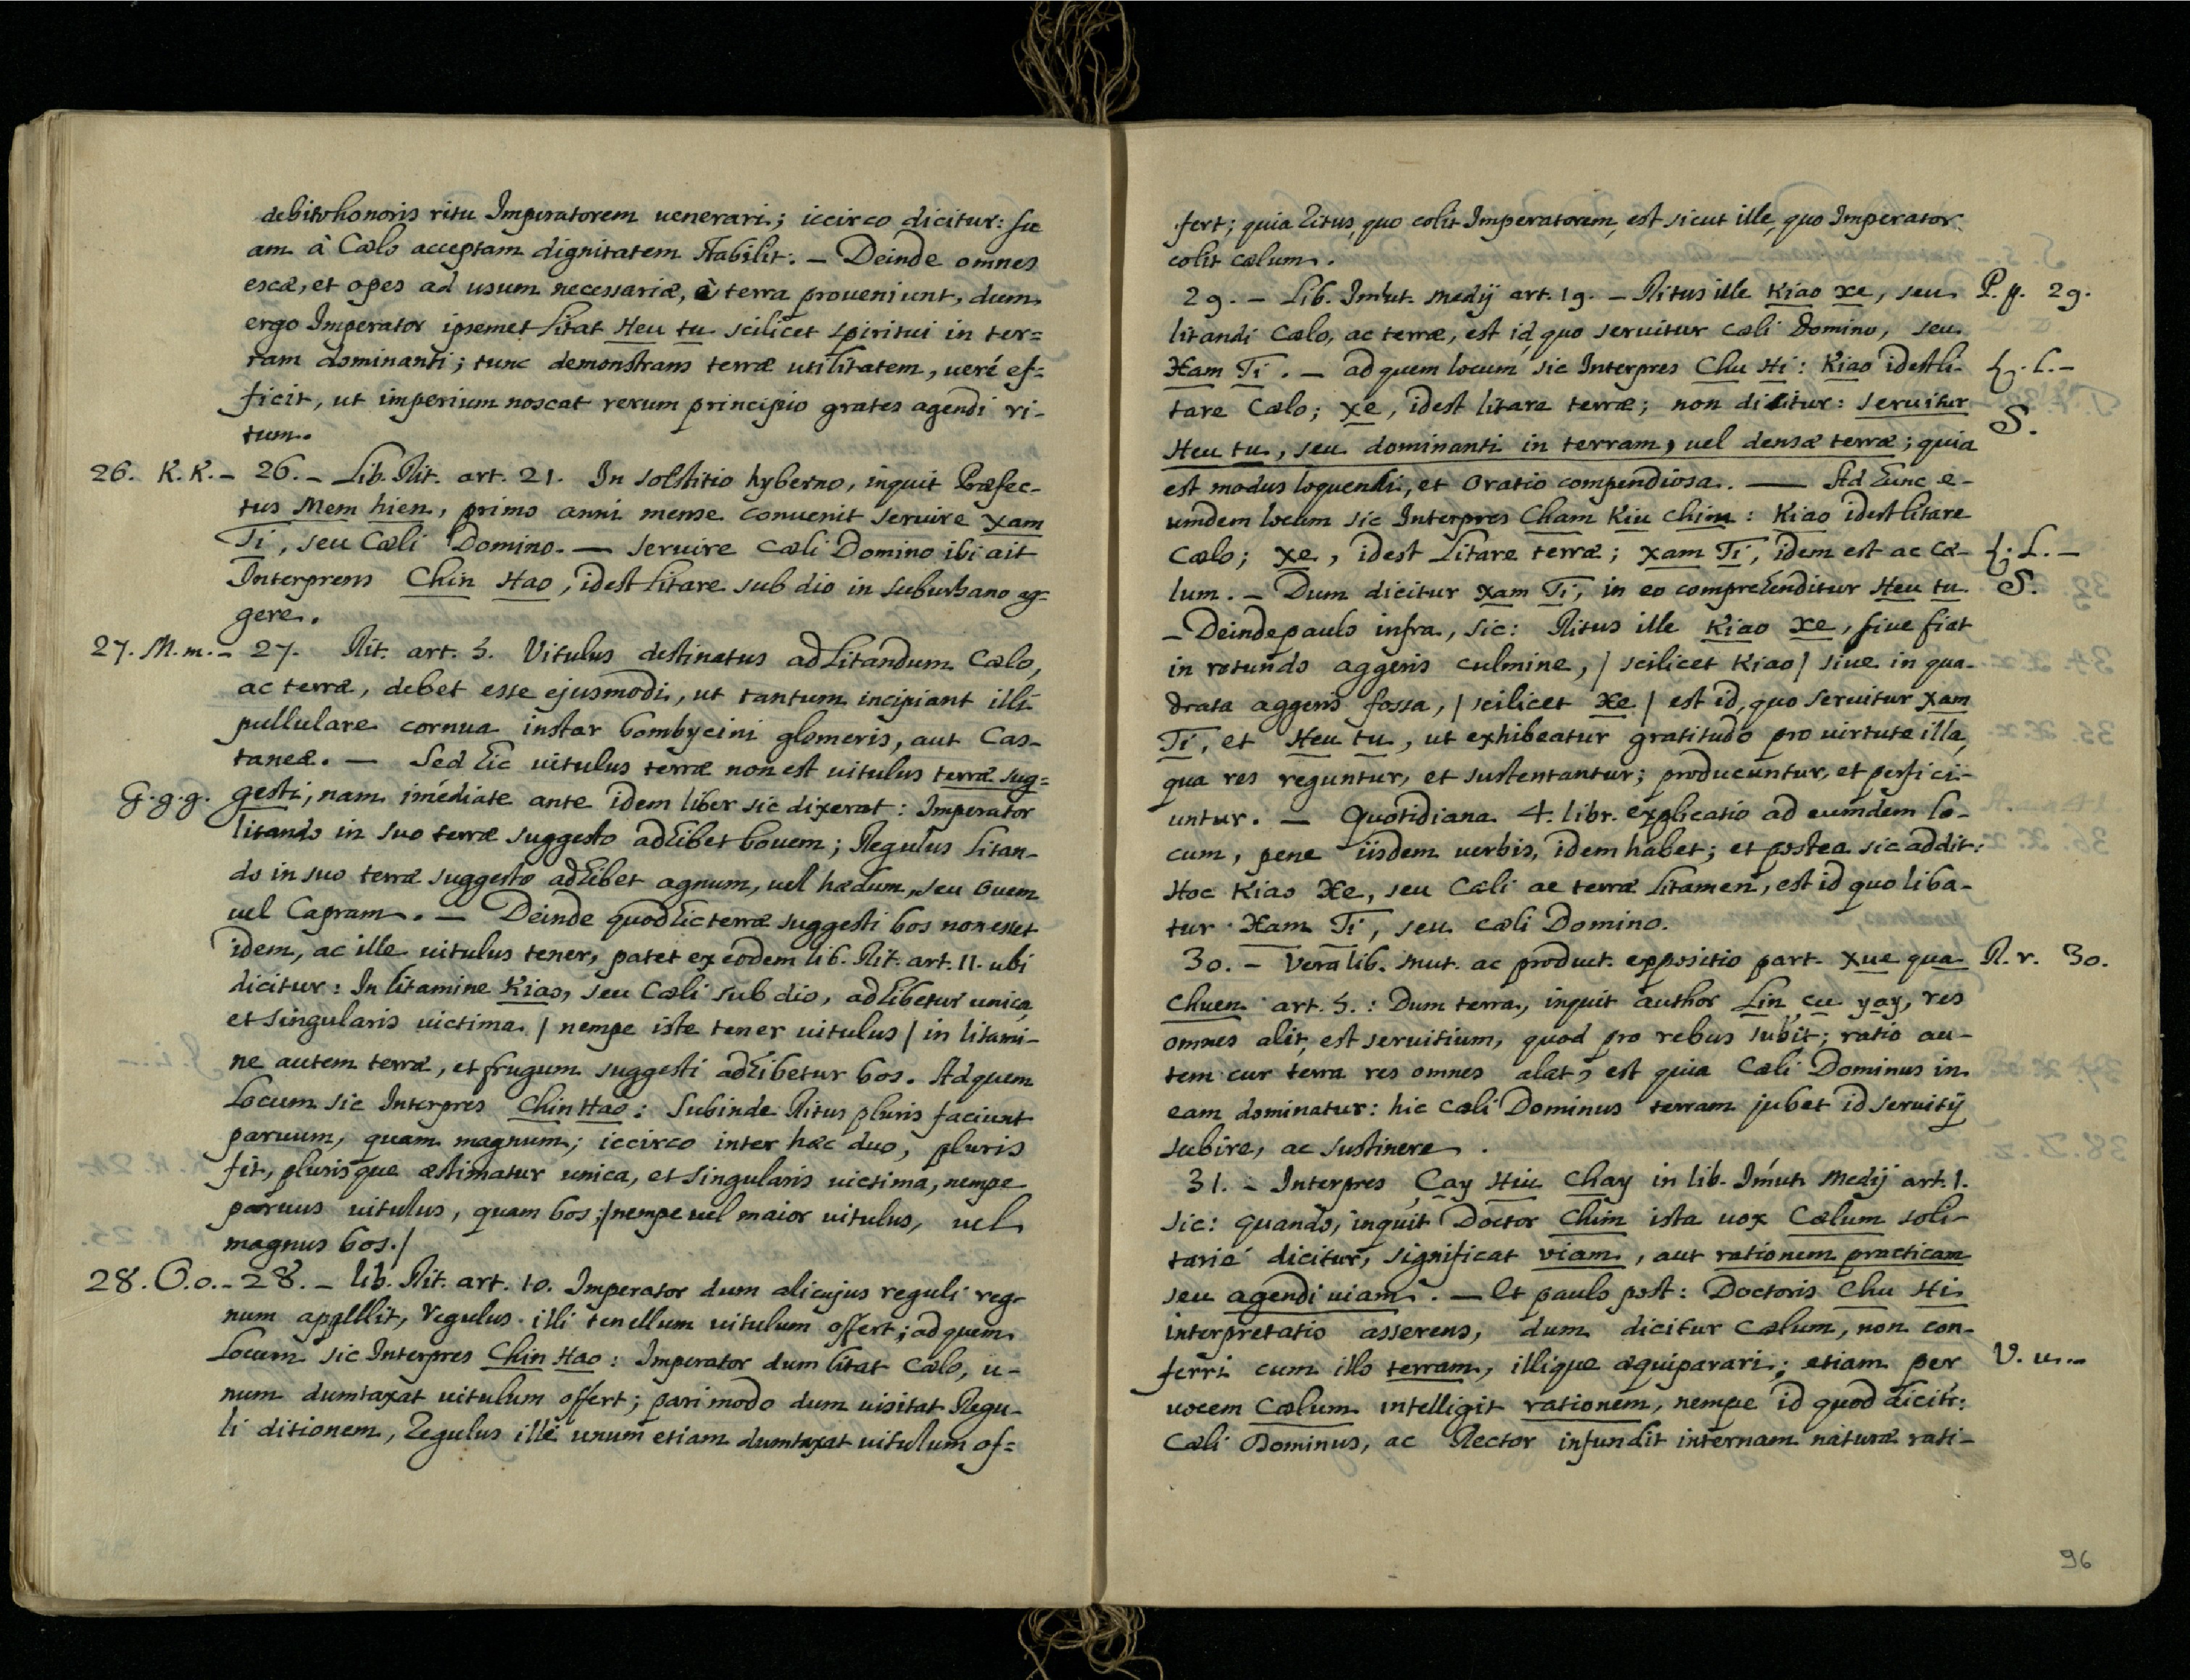 debito honoris ritu Imperatorem uenerari; iccirco dicitur: su
am à Cælo acceptam dignitatem stabilit. — Deinde omnes
escæ, et opes ad usum necessariæ, è terra proueniunt, dum
ergo Imperator ipsemet litat Heu tu scilicet spiritui in ter=
ram dominanti; tunc demonstrans terræ utilitatem, ueré ef=
ficit, ut imperium noscat rerum principio grates agendi ri-
tum.
26. K.K.- 26. - Lib. Rit. art. 21. In solstitio hyberno, inquit Præfec-
tus Mem hien, primo anni mense conuenit seruire Xam
Ti, seu Cæli Domino. — seruire Cæli Domino ibi ait
Interprens Chin Hao, idest litare sub dio in suburbano ag=
gere.
27. M.m.- 27. Rit. art. 5. Vitulus destinatus ad litandum Cælo,
ac terræ, debet esse ejusmodi, ut tantum incipiant illi
pullulare cornua instar bombycini glomeris, aut Cas-
taneæ. — Sed hic uitulus terræ non est uitulus terræ sug=
G.g.g. gesti; nam imédiate ante idem liber sic dixerat: Imperator
litando in suo terræ suggesto adhibet bouem; Regulus litan-
do in suo terræ suggesto adhibet agnum, uel hædum, seu ouem
uel Capram. — Deinde quod hic terræ suggesti bos non esset
idem, ac ille uitulus tener, patet ex eodem lib. Rit. art. 11. ubi
dicitur: In litamine Kiao, seu Cæli sub dio, adhibetur unica,
et singularis uictima / nempe iste tener uitulus / in litami-
ne autem terræ, et frugum suggesti adhibetur bos. Ad quem
Locum sic Interpres Chin Hao: Subinde Ritus pluris faciunt
paruum, quam magnum; iccirco inter hæc duo, pluris
fit, plurisque æstimatur unica, et singularis uictima, nempe
paruus uitulus, quam bos; /nempe uel maior uitulus, uel
magnus bos./
28. O.o.- 28. - lib. Rit. art. 10. Imperator dum alicujus reguli reg-
num appellit, regulus illi tenellum uitulum offert; ad quem
Locum sic Interpres Chin Hao: Imperator dum litat Cælo, u-
num dumtaxat uitulum offert; pari modo dum uisitat Regu-
li ditionem, Regulus ille unum etiam dumtaxat uitulum of=
fert; quia ritus, quo colit Imperatorem, est sicut ille, quo Imperator
colit cælum.
29. - Lib. Im̄ut. medij art. 19. - Ritus ille Kiao xe, seu P.p. 29.
litandi Cælo, ac terræ, est id quo seruitur cæli Domino, seu
Xam Ti. — ad quem locum sic Interpres Chu Hi: Kiao idest li- L.L.-
tare Cælo; xe, idest litare terræ; non dicitur: seruitur
S.
Heu tu, seu dominanti in terram, uel densæ terræ; quia
est modus loquendi, et oratio compendiosa. — Ad hunc e-
umdem locum sic Interpres Cham Kiu Chim: Kiao idest litare
Cælo; xe, idest litare terræ; xam Ti, idem est ac Cæ- L.L.-
lum. - Dum dicitur xam Ti, in eo comprehenditur Heu tu. S.
- Deinde paulo infra, sic: Ritus ille Kiao xe, siue fiat
in rotundo aggeris culmine, / scilicet Kiao / siue in qua-
drata aggeris fossa, / scilicet Xe / est id, quo seruitur Xam
Ti, et Heu tu, ut exhibeatur gratitudo pro uirtute illa,
qua res reguntur, et sustentantur; producuntur, et perfici-
untur. — Quotidiana 4. libr. explicatio ad eumdem lo-
cum, pene iisdem uerbis, idem habet; et postea sic addit:
Hoc Kiao Xe, seu Cæli ac terræ litamen, est id quo liba-
tur Xam Ti, seu cæli Domino.
30. - Vera lib. mut. ac product. expositio part. Xue qua R.r. 30.
Chuen art. 5.: Dum terra, inquit author Lin çu yay, res
omnes alit, est seruitium, quod pro rebus subit; ratio au-
tem cur terra res omnes alat, est quia Cæli Dominus in
eam dominatur: hic Cæli Dominus terram jubet id seruitij
subire, ac sustinere.
31. - Interpres Çay Hiu Chay in lib. Im̄ut. Medij art. 1.
sic: quando, inquit Doctor Chim ista uox Cælum soli-
tarié dicitur, significat viam, aut rationem practicam
seu agendi uiam. — Et paulo post: Doctoris Chu Hi
interpretatio asserens, dum dicitur Cælum, non con-
ferri cum illo terram, illique æquiparari; etiam per V.u.-
uocem Cælum intelligit rationem, nempe id quod dicitr:
Cæli Dominus, ac Rector infundit internam naturæ rati-
96